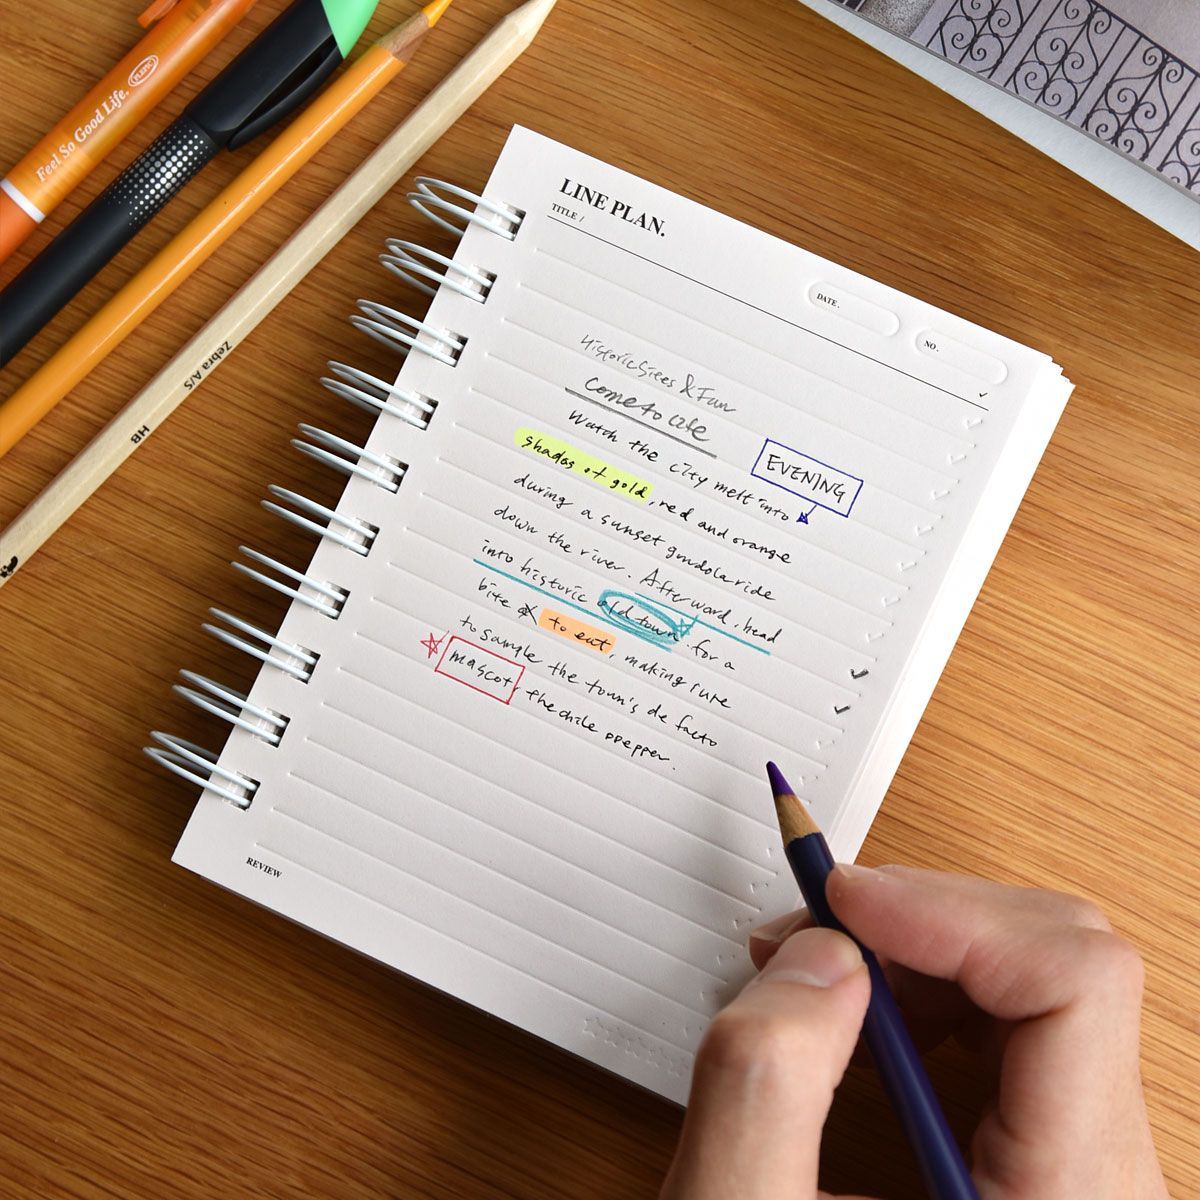 Feel So Good Life.
PLEPIC
Zebra A/S
HB
LINE PLAN.
TITLE /
DATE.
NO.
Historic Sites & Fun
Come to cafe
Watch the city melt into
EVENING
shades of gold, red and orange
during a sunset gondola ride
down the river. Afterword, head
into historic old town. for a
bite to eat, making sure
to sample the town's de facto
mascot, the chile ppepper.
REVIEW